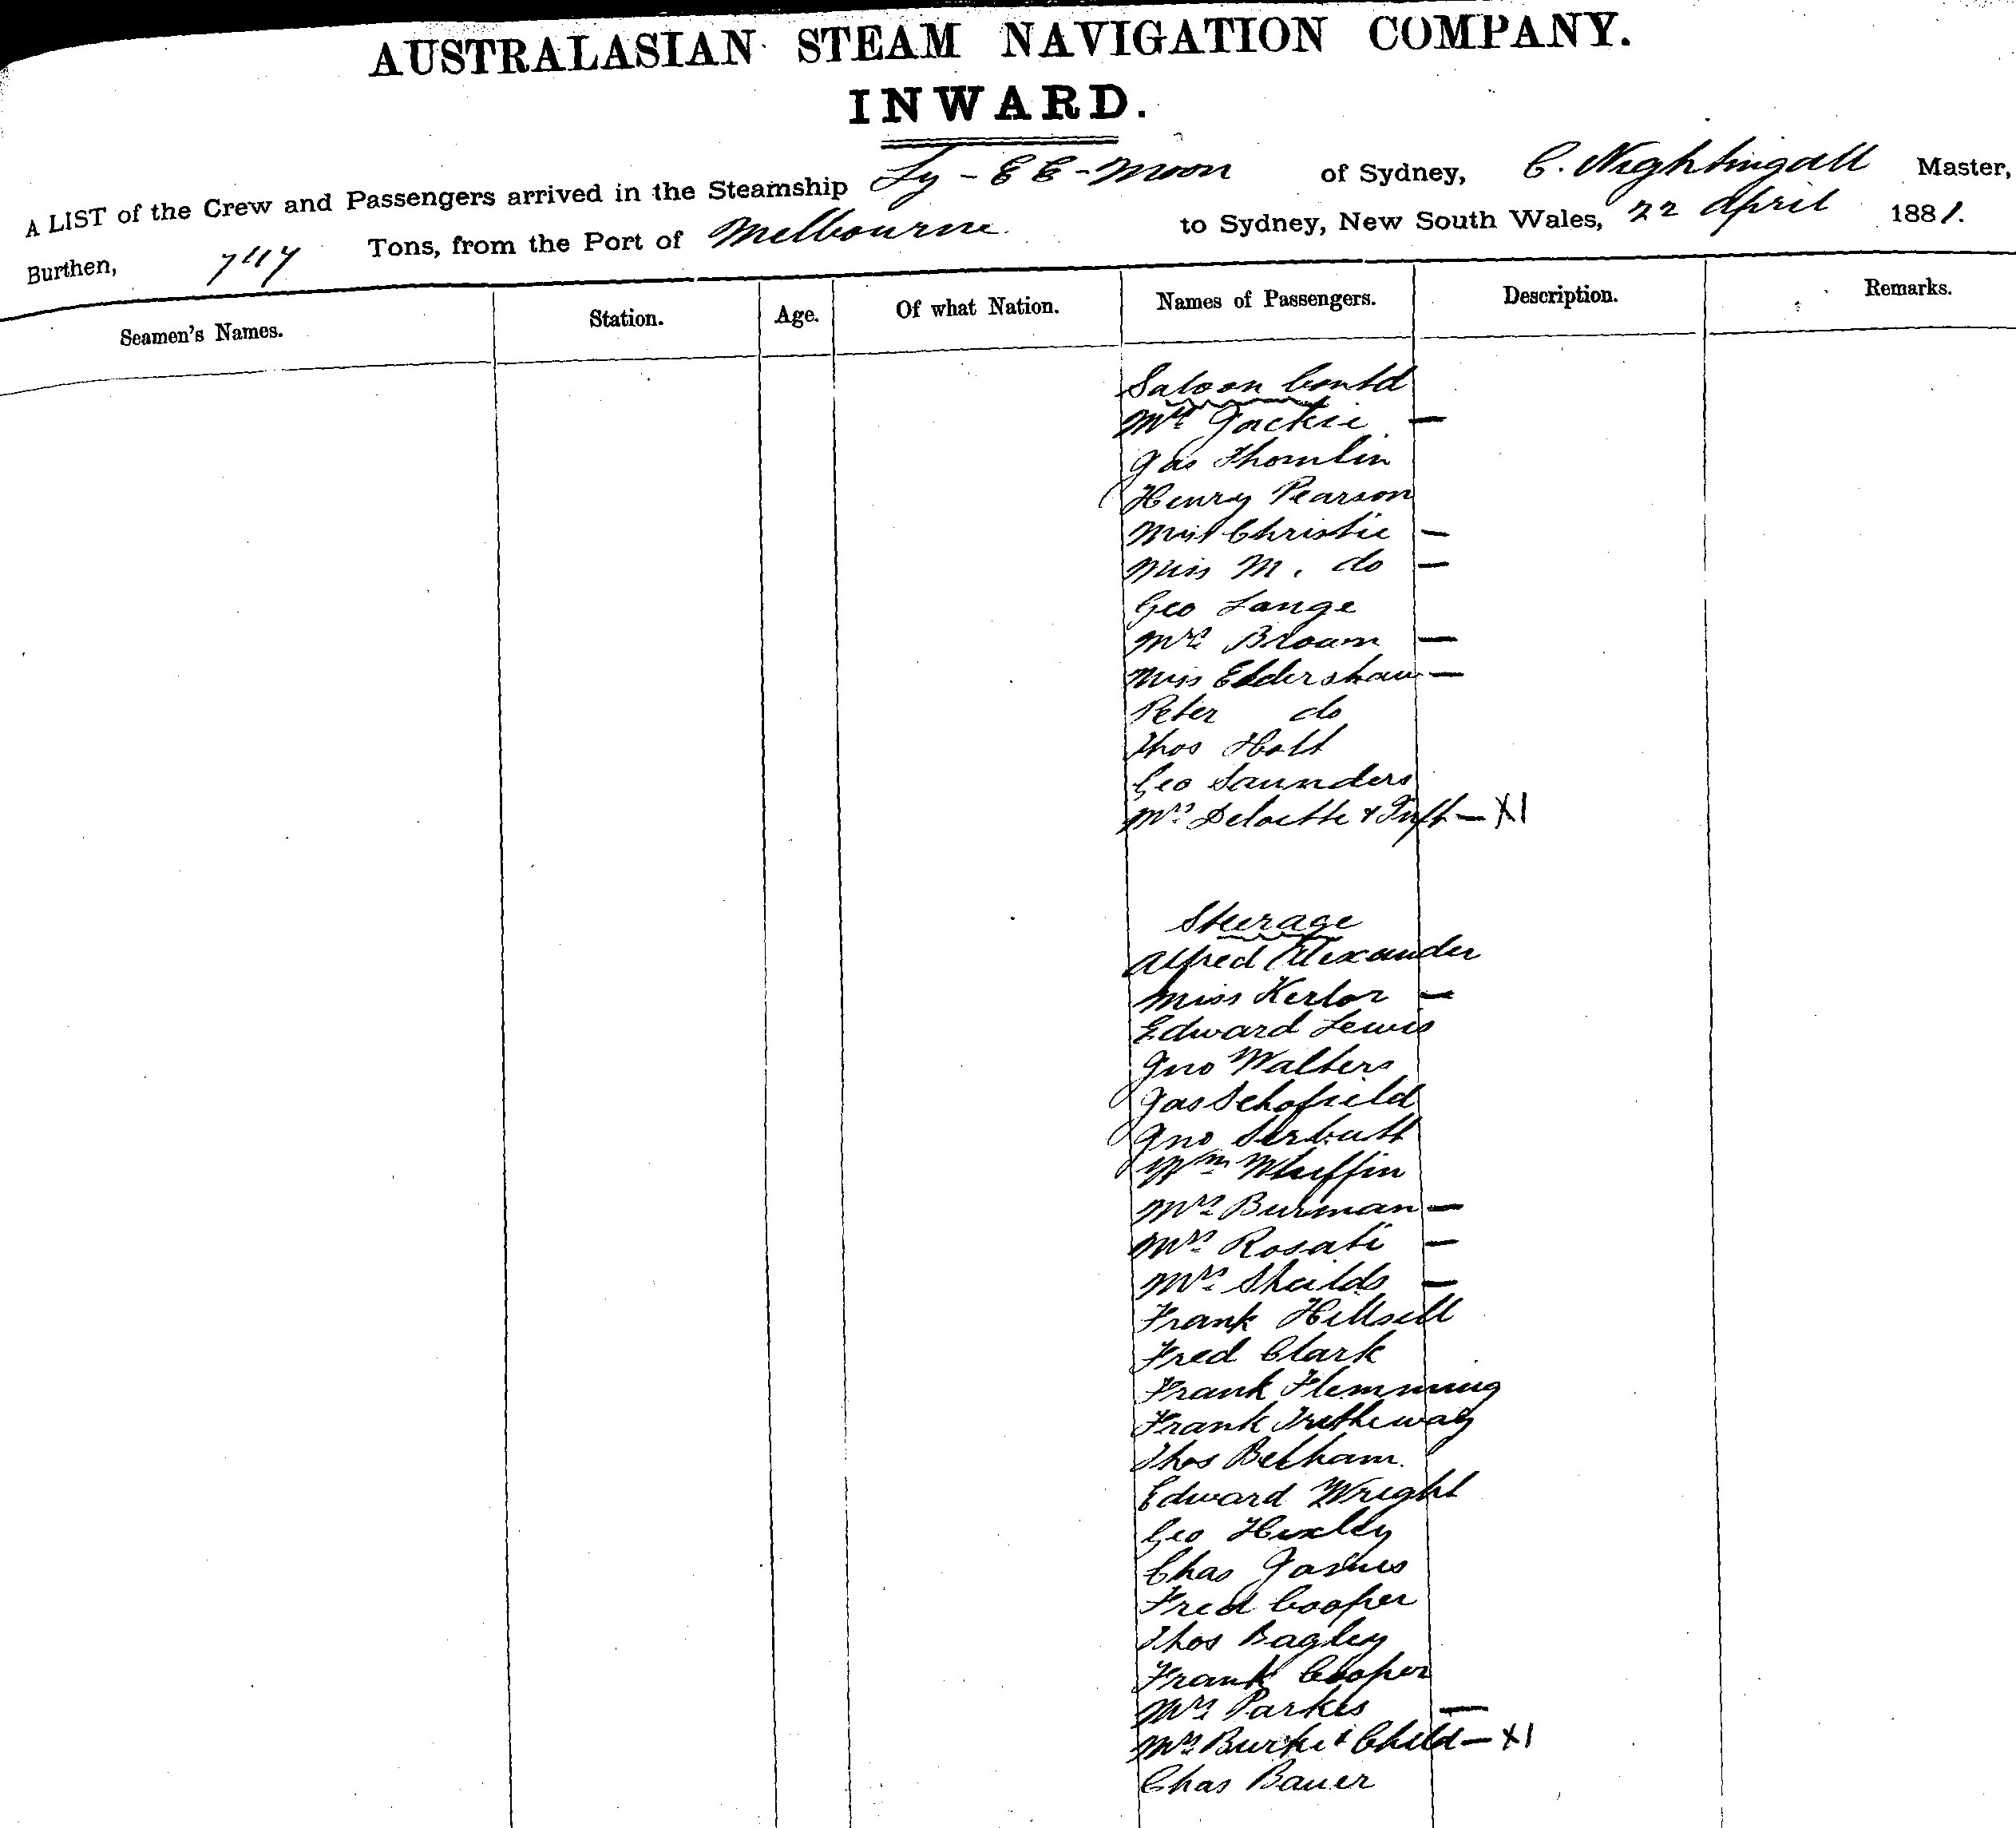 AUSTRALASIAN STEAM NAVIGATION COMPANY.
INWARD.
A LIST of the Crew and Passengers arrived in the Steamship Ly-EE-Moon of Sydney, C. Nightingall Master,
Burthen, Tons, from the Port of Melbourne to Sydney, New South Wales, 22 April 1881.
Seamen's Names. Station. Age. Of what Nation. Names of Passengers. Description. Remarks.
Saloon Contd
Mrs Jackie —
Jas Thomlin
Henry Pearson
Miss Christie —
Miss M. do —
Geo Lange
Mrs Brown —
Miss Eldershaw —
Peter do
Thos Holt
Geo Saunders
Mrs Deloitte & Inft — X1
Steerage
Alfred Alexander
Miss Kerlor —
Edward Lewis
Jno Walters
Jas Schofield
Jno Serbutt
Wm Whiffin
Mrs Burman —
Mrs Rosati —
Mrs Sheilds —
Frank Hillsell
Fred Clark
Frank Flemming
Frank Tretheway
Thos Belham
Edward Wright
Geo Huxley
Chas
Fred Cooper
Thos Bagley
Frank Cooper
Mrs Parkes —
Mrs Burke & Child — X1
Chas Bauer